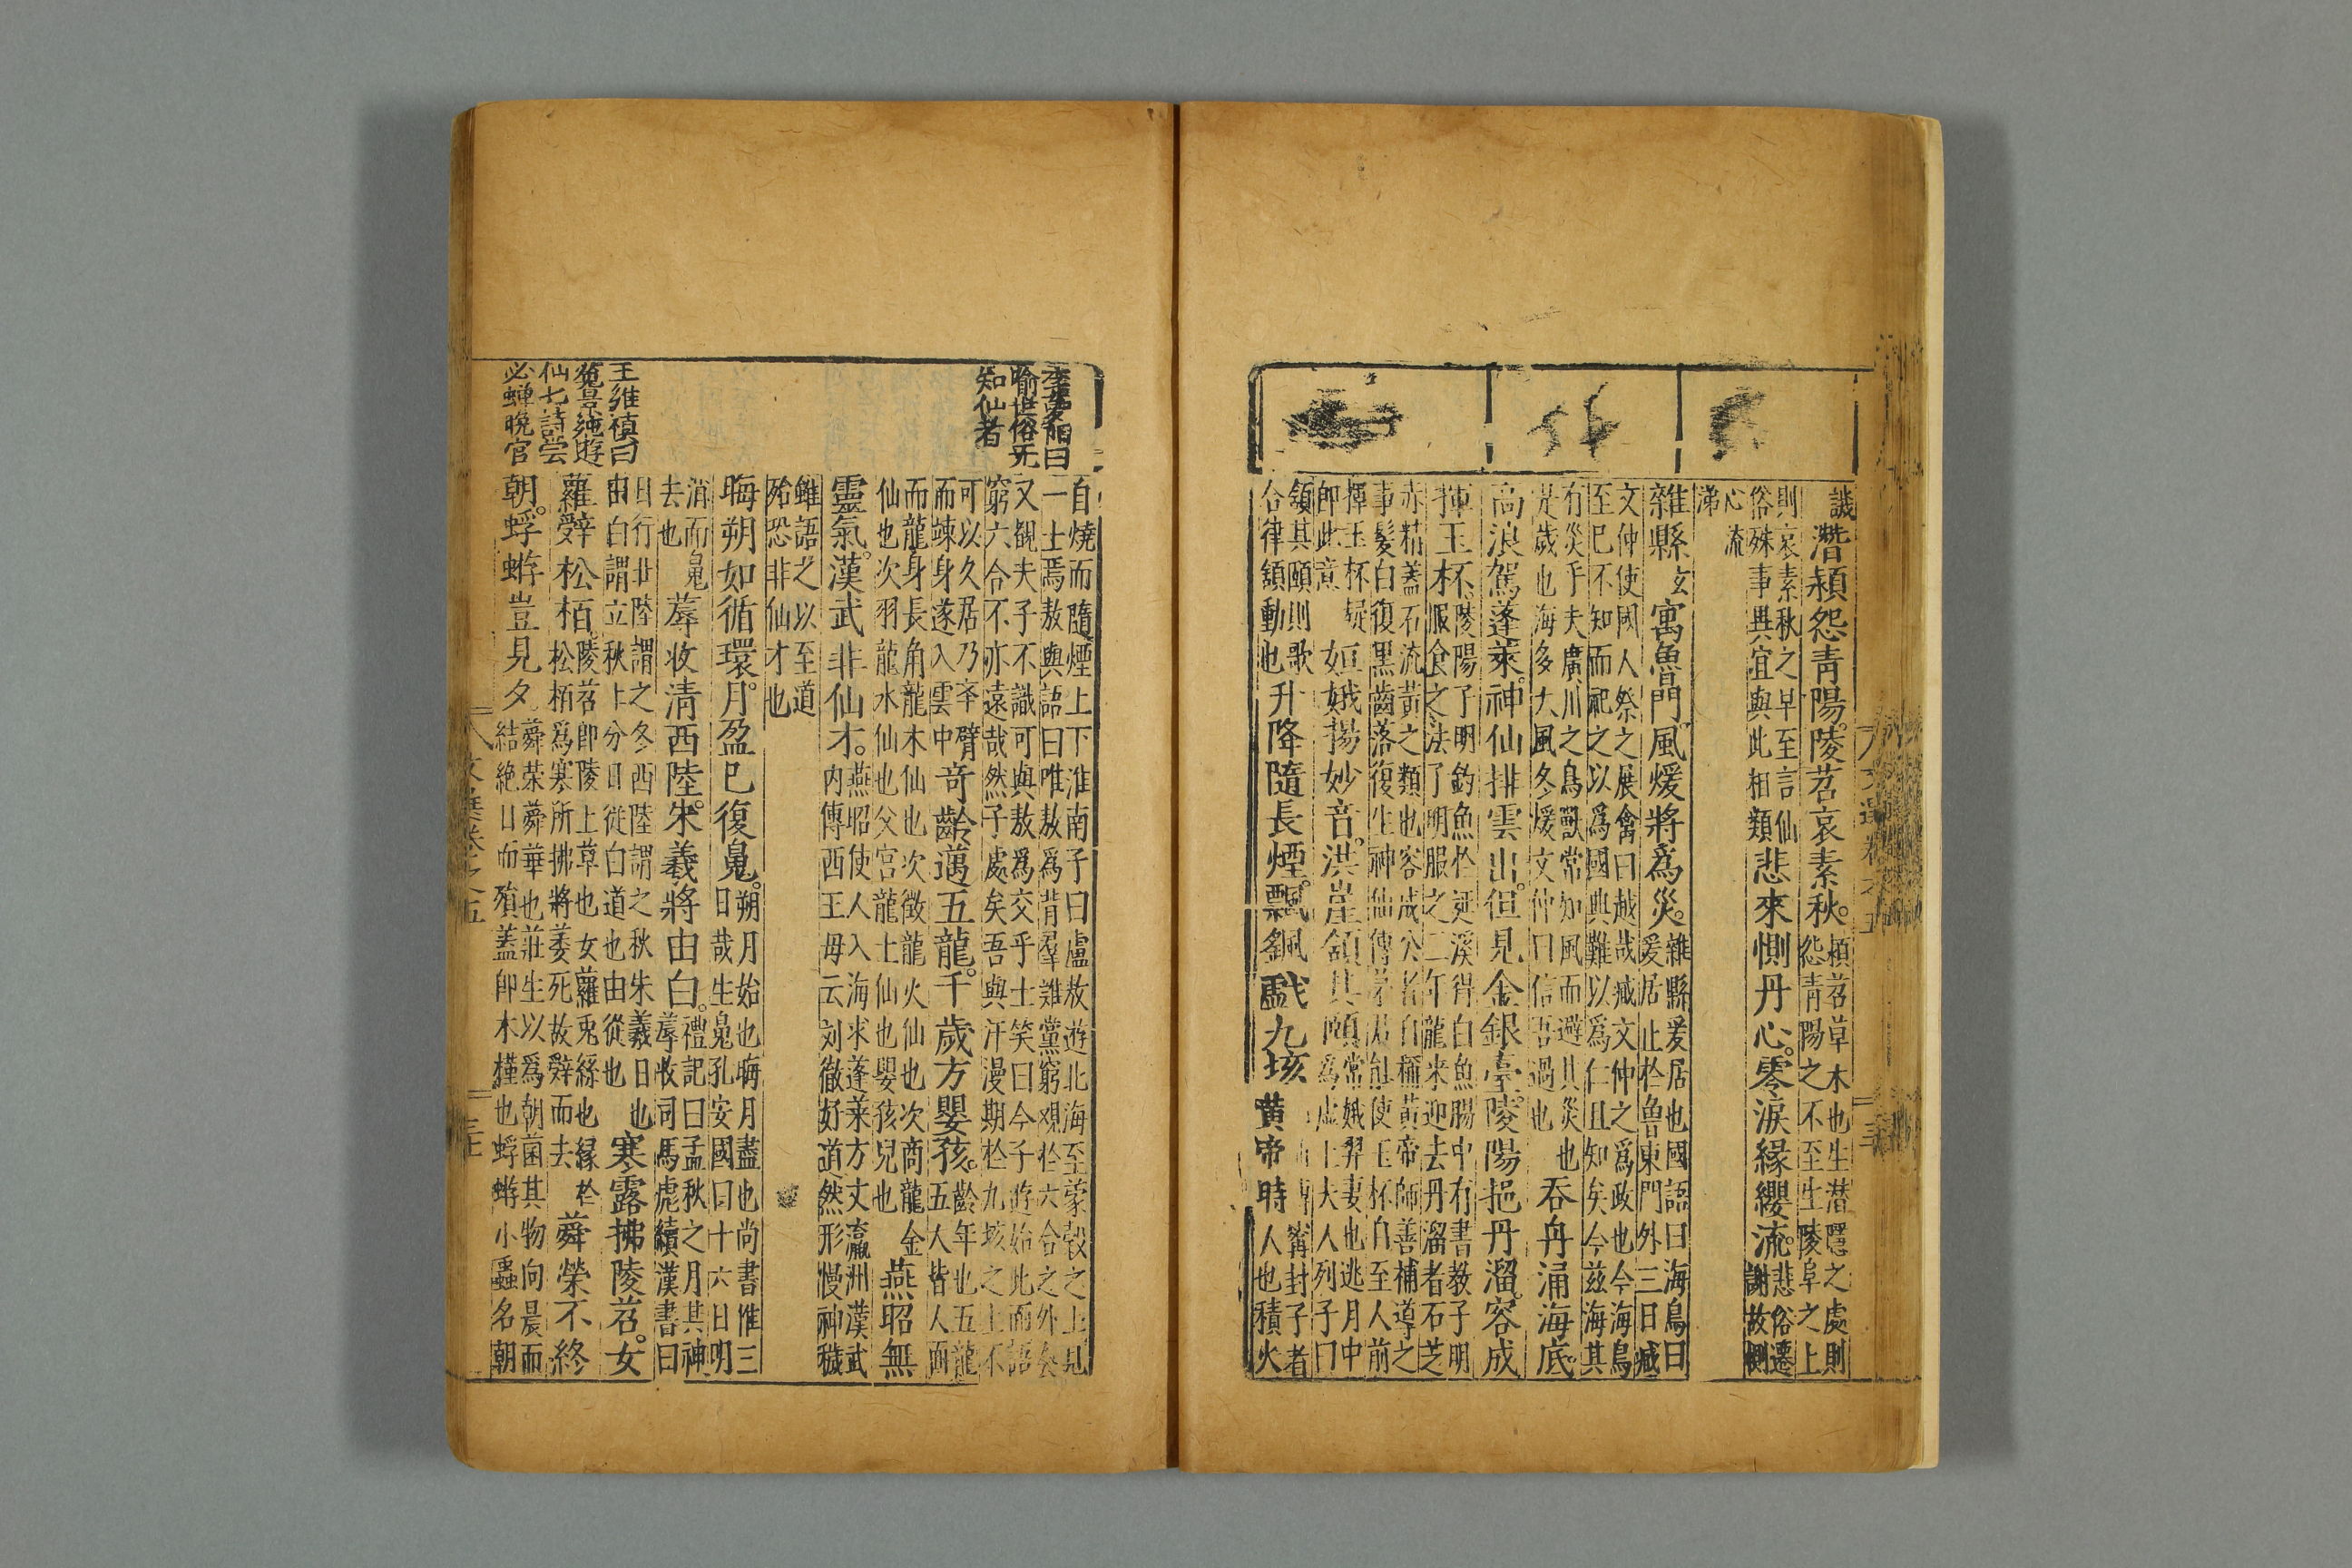 譏潛穎怨青陽。陵苕哀素秋。穎苕草木也生潛隱之處則
怨青陽之不至生陵阜之上
則哀素秋之早至言仙
俗殊事異宜與此相類悲來惻丹心。零淚緣纓流。悲俗遷
謝故惻
心流
涕
雜縣玄寓魯門。風煖將爲災。雜縣爰居也國語曰海鳥曰
爰居止於魯東門外三日臧
文仲使國人祭之展禽曰越哉臧文仲之爲政也今海鳥
至已不知而祀之以爲國典難以爲仁且知矣今茲海其
有災乎夫廣川之鳥獸常知風而避其災也
是歲也海多大風冬煖文仲曰信吾過也吞舟涌海底。
高浪駕蓬萊。神仙排雲出。但見金銀臺。陵陽挹丹溜。容成
揮玉杯。陵陽子明釣魚於涎溪得白魚腸中有書教子明
服食之法子明服之三年龍來迎去丹溜者石芝
赤精蓋石流黃之類也容成公者自稱黃帝師善補導之
事髮白復黑齒落復生神仙傳茅君能使玉杯自至人前
揮玉杯疑
即此意姮娥揚妙音。洪崖頷其頤。常娥羿妻也逃月中
爲虛上夫人列子曰
頷其頤則歌
合律頷動也升降隨長煙。飄颻戲九垓。
黃帝時人也積火
甯封子者
自燒而隨煙上下淮南子曰盧敖遊北海至蒙榖之上見
一士焉敖與語曰唯敖爲背羣離黨窮觀於六合之外
又觀夫子不識可與敖爲交乎士笑曰今子遊始此而語
窮六合不亦遠哉然子處矣吾與汗漫期於九垓之上不
可以久居乃奉臂
而竦身遂入雲中奇齡邁五龍。千歲方嬰孩。齡年也五龍
五人皆人面
而龍身長角龍木仙也次徵龍火仙也次商龍金
仙也次羽龍水仙也父宮龍土仙也嬰孩兒也燕昭無
靈氣。漢武非仙才。燕昭使人入海求蓬萊方丈瀛洲漢武
內傳西王母云刘徹好道然形慢神穢
雖語之以至道
殆恐非仙才也
晦朔如循環。月盈已復䰟。朔月始也晦月盡也尚書惟三
日哉生䰟孔安國曰十六日明
消而䰟
去也蓐收清西陸。朱羲將由白。禮記曰孟秋之月其神
蓐收司馬彪續漢書曰
日行北陸謂之冬西陸謂之秋朱羲日也
由白謂立秋上分日從白道也由從也寒露拂陵苕。女
蘿辭松栢。陵苕即陵上草也女蘿兎絲也緣於
松栢爲寒所拂將萎死故辭而去蕣榮不終
朝。蜉蝣豈見夕。蕣榮蕣華也莊生以爲朝菌其物向晨而
結絶日而殞蓋即木槿也蜉蝣小蟲名朝
喻世俗无
知仙者
王維禎曰
仙七詩尝
必蟬晩官